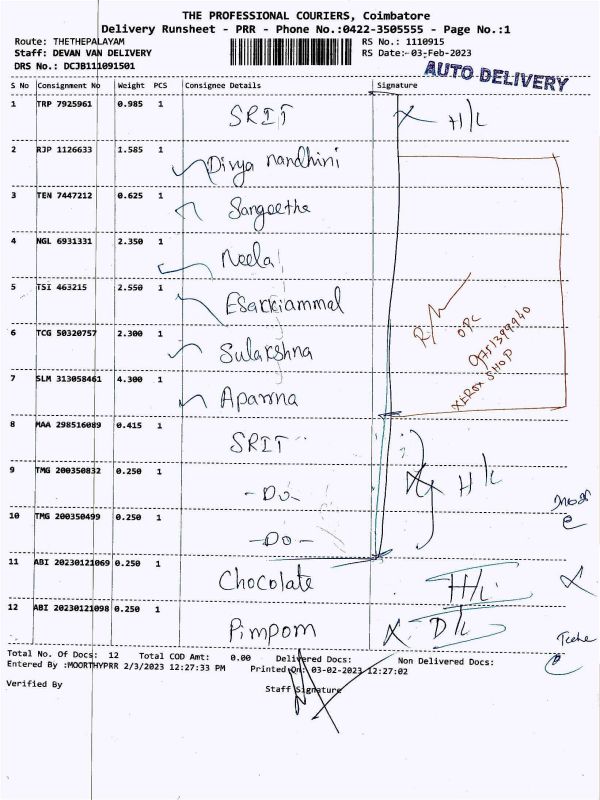 THE PROFESSIONAL COURIERS, Coimbatore
Delivery Runsheet - PRR - Phone No.:0422-3505555 - Page No.:1
Route: THETHEPALAYAM RS No.: 1110915
Staff: DEVAN VAN DELIVERY RS Date:- 03-Feb-2023
DRS No.: DCJB111091501
AUTO DELIVERY
S No Consignment No Weight PCS Consignee Details Signature
1 TRP 7925961 0.985 1 SRIT H/L
2 RJP 1126633 1.585 1 Divya nandhini
3 TEN 7447212 0.625 1 Sangeetha
4 NGL 6931331 2.350 1 Neela
5 TSI 463215 2.550 1 Esakkiammal
6 TCG 50320757 2.300 1 Sulakshna
7 SLM 313058461 4.300 1 Aparna
OPC
9751399940
XEROX SHOP
8 MAA 298516089 0.415 1 SRIT
9 TMG 200350832 0.250 1 -Do- H/L
10 TMG 200350499 0.250 1 -Do-
11 ABI 20230121069 0.250 1 Chocolate H/L
12 ABI 20230121098 0.250 1 Pimpom D/L
Total No. Of Docs: 12 Total COD Amt: 0.00 Delivered Docs: Non Delivered Docs:
Entered By :MOORTHYPRR 2/3/2023 12:27:33 PM Printed On: 03-02-2023 12:27:02
Verified By Staff Signature